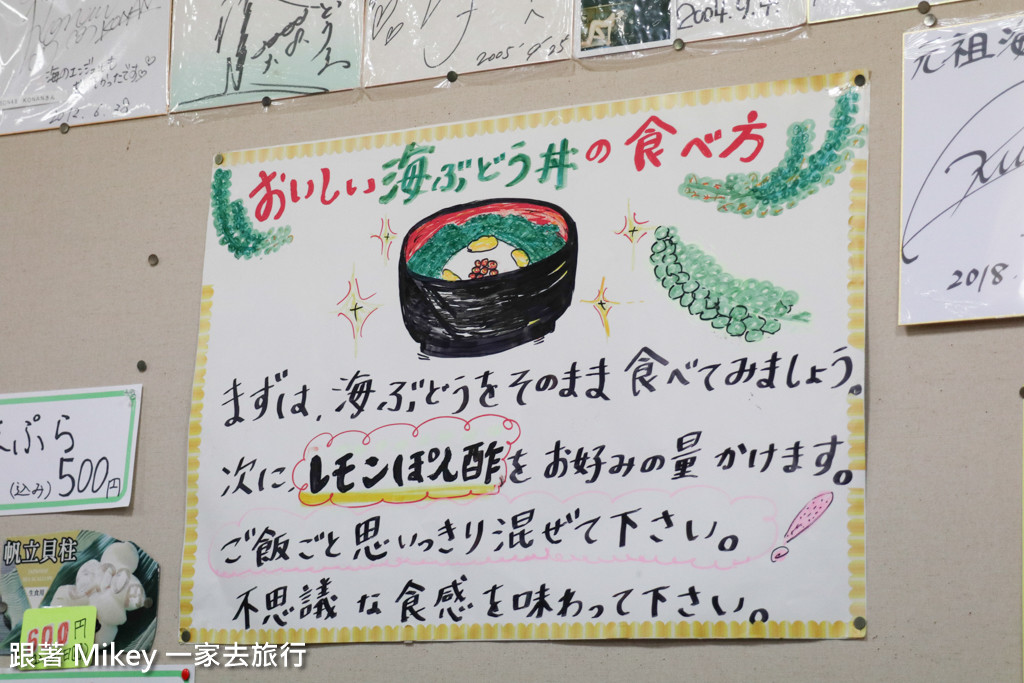 海のエンジェルも
2012.6.20
2005
2004.9.4.
元祖海
2018.
おいしい海ぶどう丼の食べ方
まずは、海ぶどうをそのまま食べてみましょう。
次に、レモンぽん酢をお好みの量かけます。
ご飯ごと思いっきり混ぜて下さい。
不思議な食感を味わって下さい。
ぷら
(込み)500円
帆立貝柱
600円
跟著 Mikey 一家去旅行